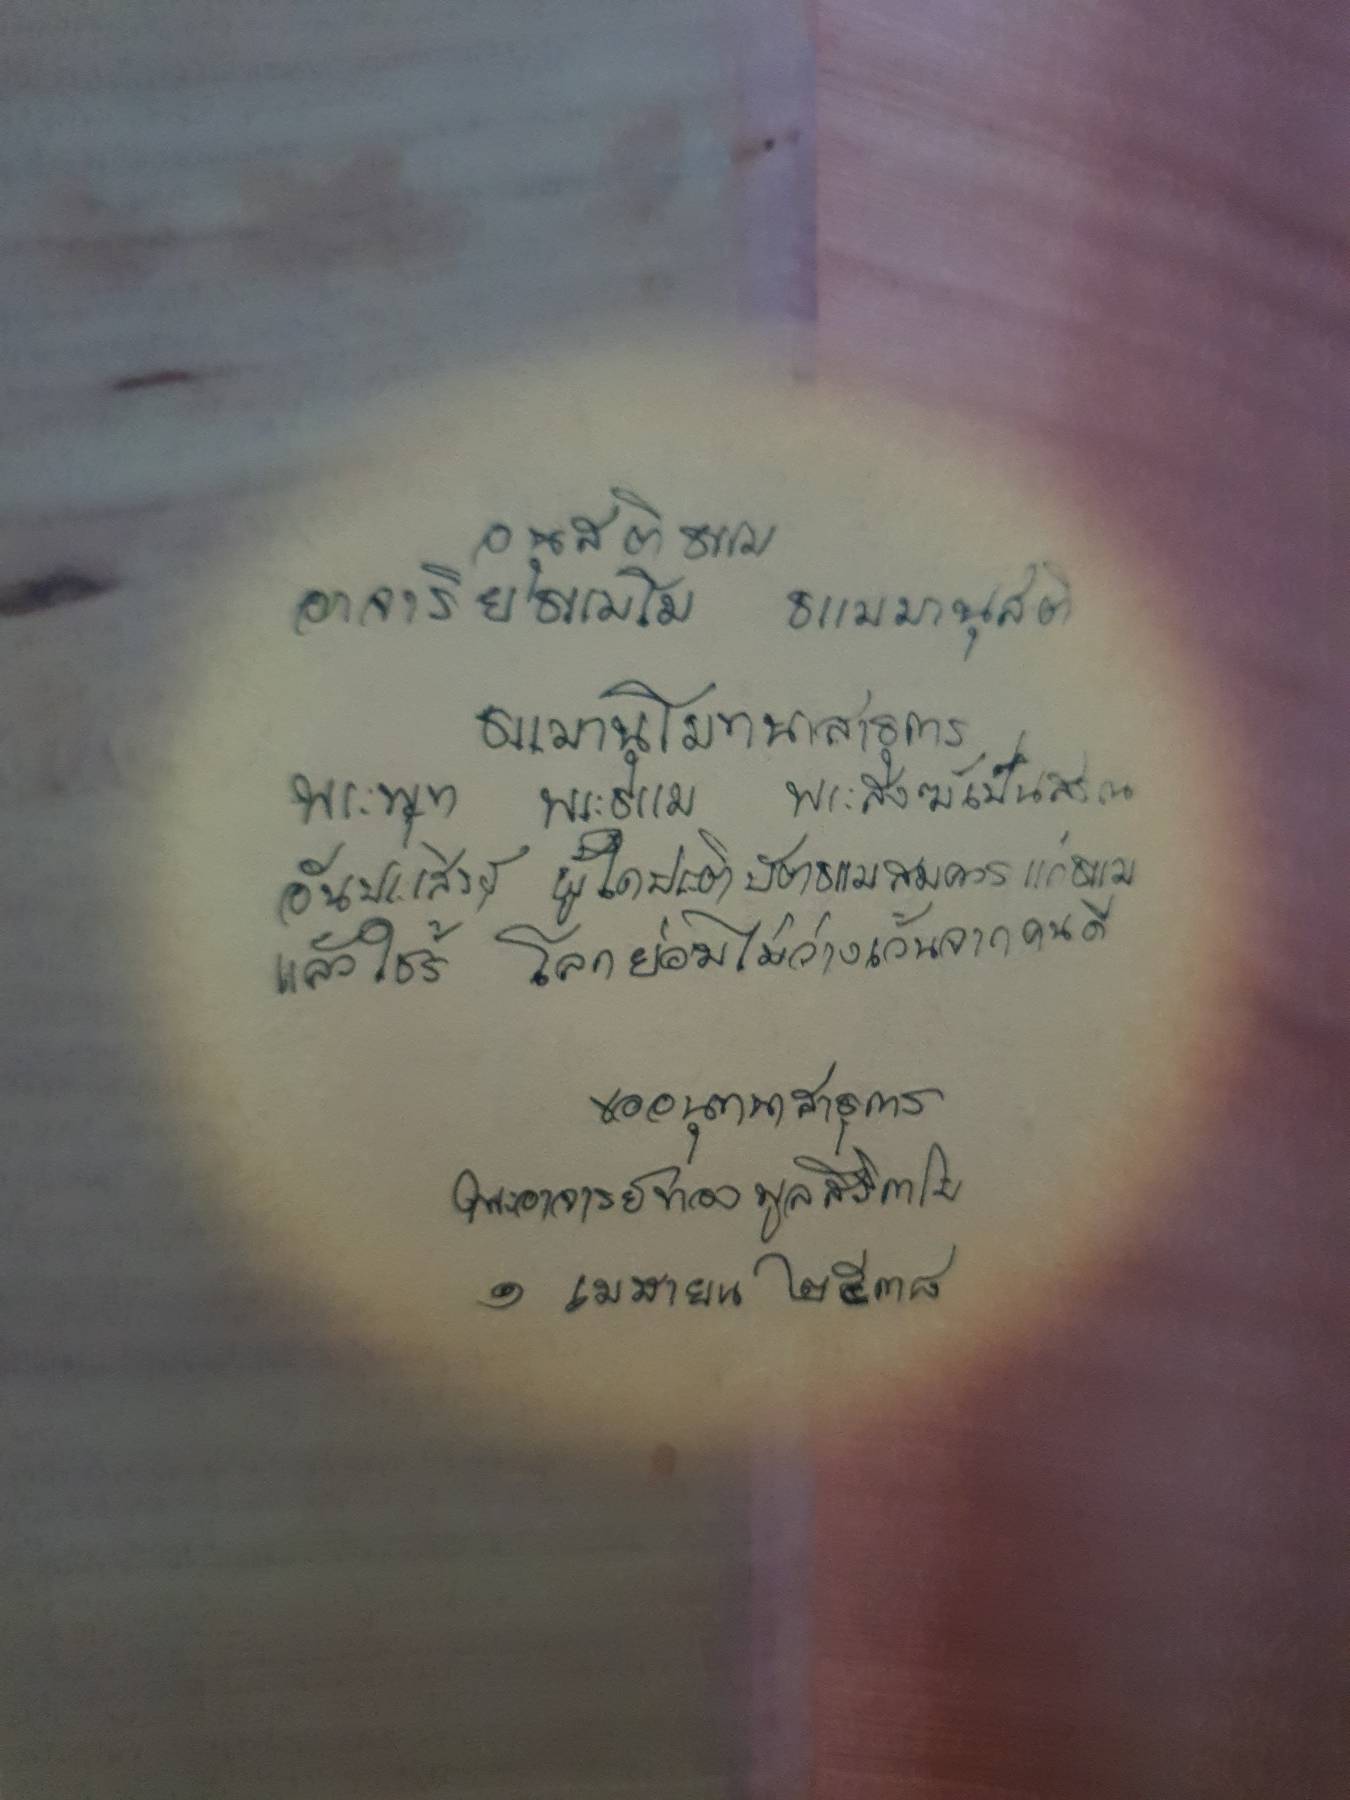 อนุสติธรรม
อาจาริยธมฺโม ธรรมมานุสติ
ธรรมานุโมทนาสาธุการ
พระพุท พระธรรม พระสังฆ์เป็นสรณ
อันประเสริฐ ผู้ใดประติบัตธรรมสมควรแก่ธรรม
แล้วใซร้ โลกย่อมไม่ว่างเว้นจากคนดี
ขออนุทานาสาธุการ
พระอาจารย์ทองพูล
๑ เมษายน ๒๕๓๘